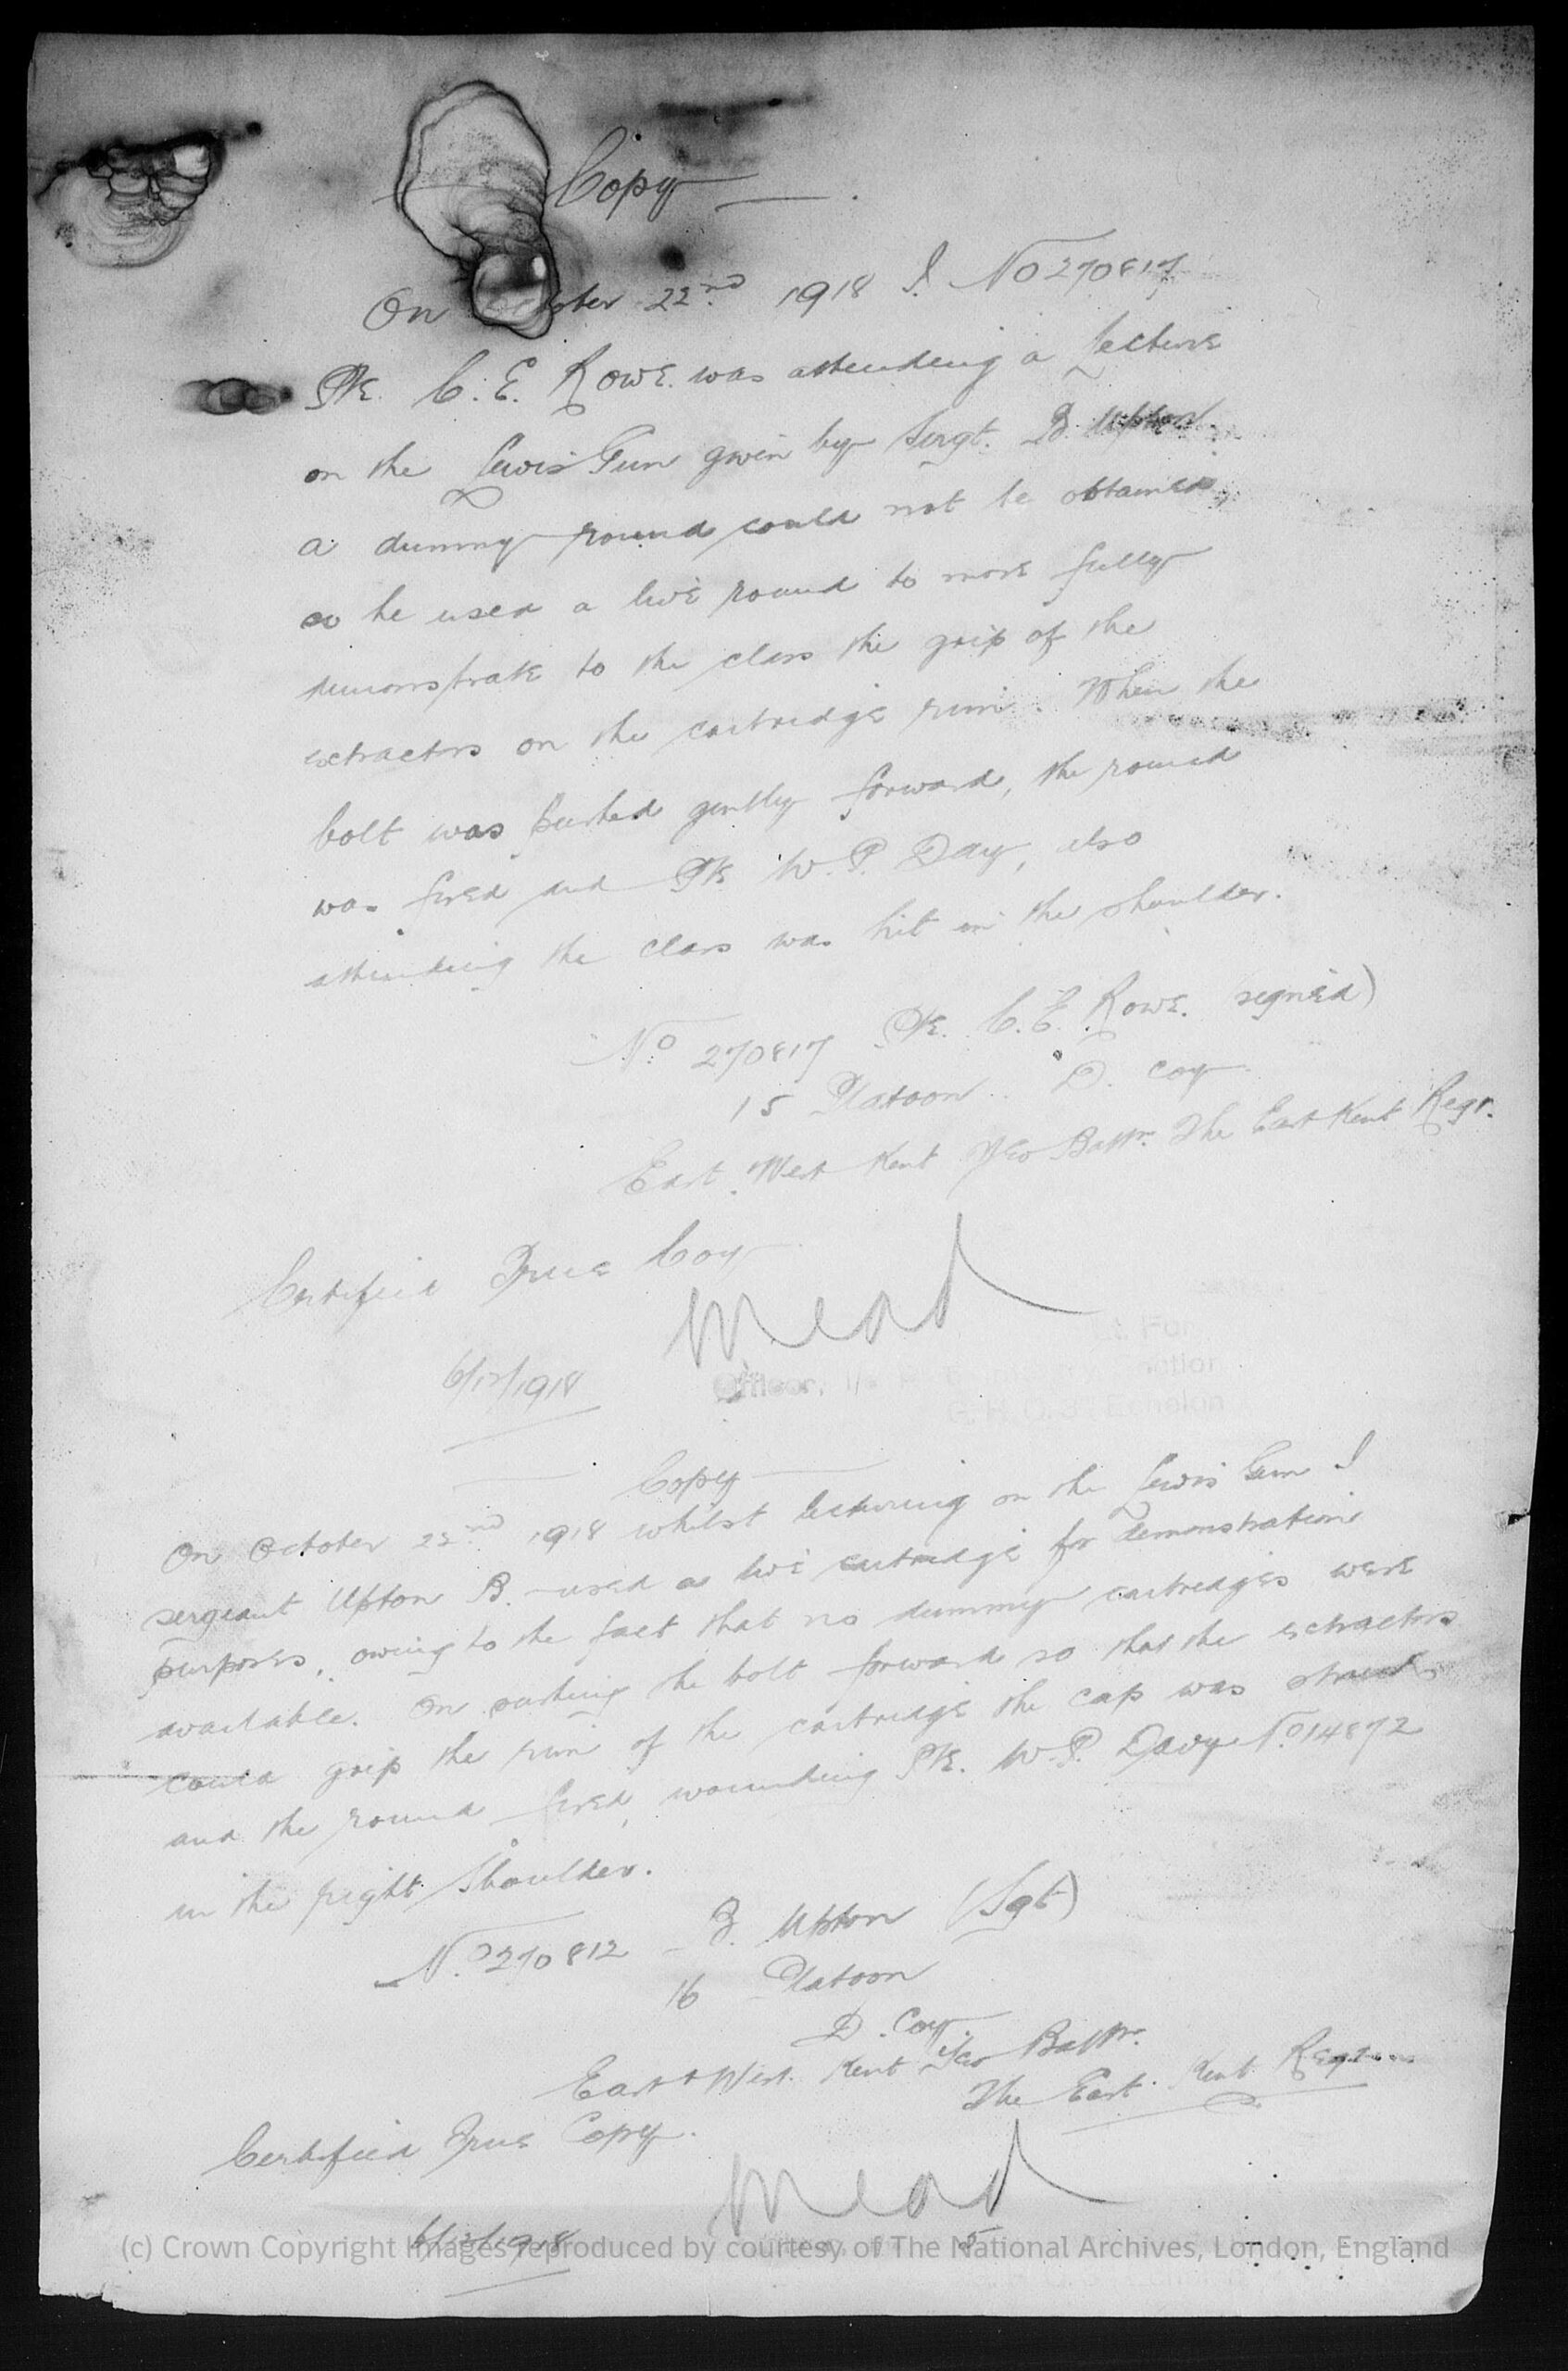 Copy
On October 22nd 1918 I. No 270817
Pte. C. E. Rowe. was attending a Lecture
on the Lewis Gun given by Sergt. B. Upton.
a dummy round could not be obtained,
so he used a live round to more fully
demonstrate to the class the grip of the
extractors on the cartridge rim. When the
bolt was pushed gently forward, the round
was fired and Pte W. P. Day, also
attending the class was hit in the shoulder.
No 270817 Pte. C. E. Rowe. signed)
15 Platoon. D. coy
East. West Kent Yeo Battn. The East Kent Regt.
Certified True Coy
Mead
6/12/1918
Officer, i/c
G. H. Q. 3rd Echelon
Copy
On October 22nd 1918 whilst lecturing on the Lewis Gun I
sergeant Upton B. used a live cartridge for demonstration
purposes, owing to the fact that no dummy cartridges were
available. On pushing the bolt forward so that the extractors
could grip the rim of the cartridge the cap was struck
and the round fired, wounding Pte. W. P. Davy No 14872
in the right shoulder.
No. 270812 B. Upton (Sgt)
16 Platoon
D. Coy.
East & West. Kent Yeo Battn.
The East. Kent Regt
Certified True Copy.
Mead
6/12/1918
(c) Crown Copyright Images reproduced by courtesy of The National Archives, London, England